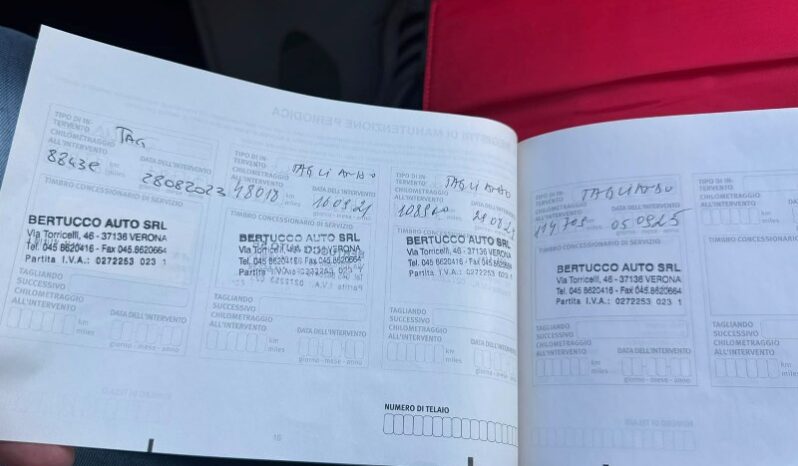 TIPO DI IN-
TERVENTO
TAG
CHILOMETRAGGIO
ALL'INTERVENTO
DATA DELL'INTERVENTO
km
28082023
TIMBRO CONCESSIONARIO DI SERVIZIO
BERTUCCO AUTO SRL
Via Torricelli, 46 - 37136 VERONA
Tel. 045 8620416 - Fax 045.8620664
Partita I.V.A.: 0272253 023 1
TAGLIANDO
SUCCESSIVO
CHILOMETRAGGIO
ALL'INTERVENTO
DATA DELL'INTERVENTO
km
miles
giorno - mese - anno
TIPO DI IN-
TERVENTO
TAGLIANDO
CHILOMETRAGGIO
ALL'INTERVENTO
DATA DELL'INTERVENTO
48018
miles
giorno - mese - anno
TIMBRO CONCESSIONARIO DI SERVIZIO
BERTUCCO AUTO SRL
37136 VERONA
Tel. 045 8620416 - Fax 045.8620664
Partita I.V.A.: 0272253 023 1
TAGLIANDO
SUCCESSIVO
CHILOMETRAGGIO
ALL'INTERVENTO
DATA DELL'INTERVENTO
km
miles
giorno - mese - anno
TIPO DI IN-
TERVENTO
TAGLIANDO
CHILOMETRAGGIO
ALL'INTERVENTO
DATA DELL'INTERVENTO
TIMBRO CONCESSIONARIO DI SERVIZIO
BERTUCCO AUTO SRL
Via Torricelli, 46 - 37136 VERONA
Tel. 045 8620416 - Fax 045.8620664
Partita I.V.A.: 0272253 023 1
TAGLIANDO
SUCCESSIVO
CHILOMETRAGGIO
ALL'INTERVENTO
DATA DELL'INTERVENTO
km
miles
giorno - mese - anno
NUMERO DI TELAIO
TIPO DI IN-
TERVENTO
TAGLIANDO
CHILOMETRAGGIO
ALL'INTERVENTO
DATA DELL'INTERVENTO
050925
TIMBRO CONCESSIONARIO DI SERVIZIO
BERTUCCO AUTO SRL
Via Torricelli, 46 - 37136 VERONA
Tel. 045 8620416 - Fax 045.8620664
Partita I.V.A.: 0272253 023 1
TAGLIANDO
SUCCESSIVO
CHILOMETRAGGIO
ALL'INTERVENTO
DATA DELL'INTERVENTO
km
miles
giorno - mese - anno
TIPO DI IN-
TERVENTO
CHILOMETRAGGIO
ALL'INTERVENTO
TIMBRO CONCESSIONARIO
TAGLIANDO
SUCCESSIVO
CHILOMETRAGGIO
ALL'INTERVENTO